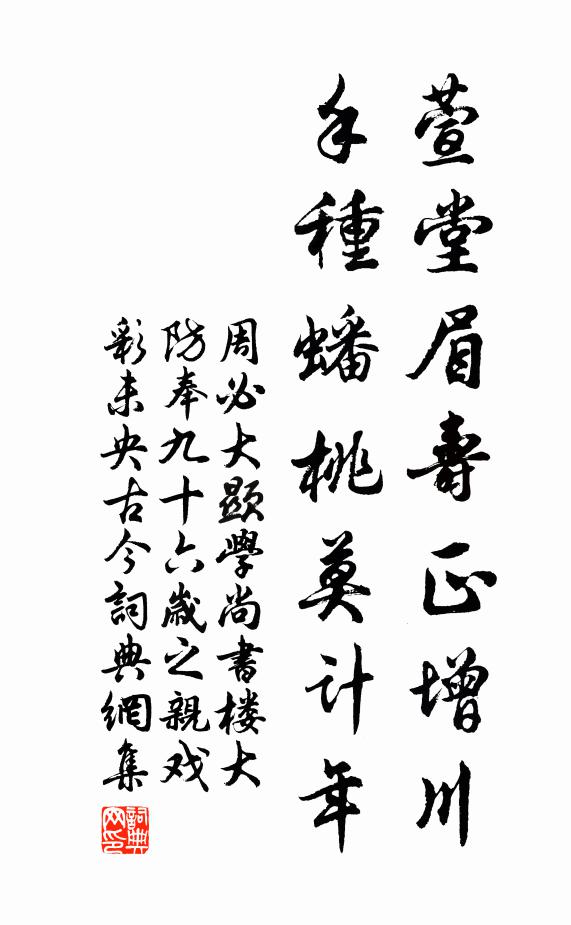 萱堂眉壽正增川
手種蟠桃莫計年
周必大顯學尚書樓大
防奉九十六歲之親戏
彩未央古今詞典網集
詞典网印